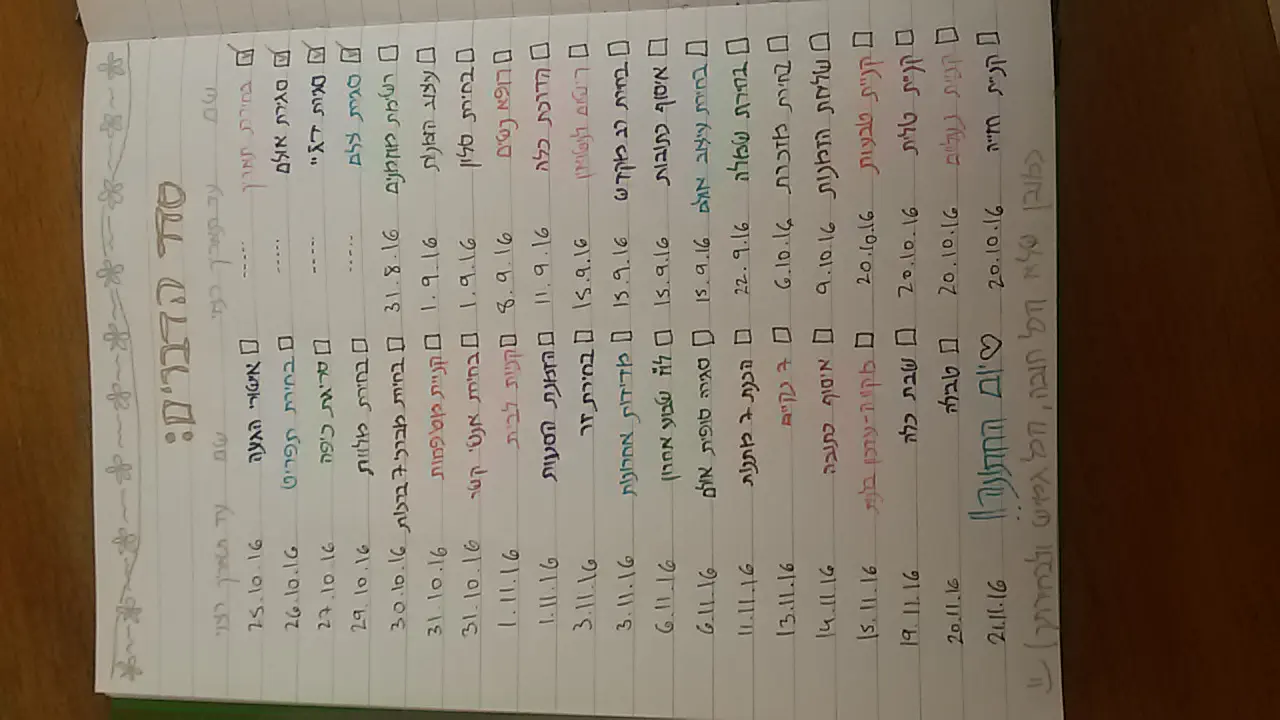 סדר הדברים:
שם עד תאריך רצוי שם עד תאריך רצוי
☑ בחירת תאריך ..... ☐ אישורי הגעה 25.10.16
☑ סגירת אולם ..... ☐ בחירת תפריט 26.10.16
☑ סגירת דיג'יי ..... ☐ סריגת כיפה 27.10.16
☑ סגירת צלם ..... ☐ בחירת מלוות 29.10.16
☐ רשימת מוזמנים 31.8.16 ☐ בחירת מברכי 7 ברכות 30.10.16
☐ עיצוב הזמנות 1.9.16 ☐ קניית מטפחות 31.10.16
☐ בחירת סלון 1.9.16 ☐ בחירת אנשי קשר 31.10.16
☐ רופא נשים 8.9.16 ☐ קניות לבית 1.11.16
☐ הדרכת כלה 11.9.16 ☐ הזמנת הסעות 1.11.16
☐ רישום לנישואין 15.9.16 ☐ בחירת זר 3.11.16
☐ בחירת רב מקדש 15.9.16 ☐ מדידות אחרונות 3.11.16
☐ איסוף כתובות 15.9.16 ☐ לו"ז שבוע אחרון 6.11.16
☐ בחירת עיצוב אולם 15.9.16 ☐ סגירה סופית אולם 6.11.16
☐ בחירת שמלה 22.9.16 ☐ הכנת 7 מתנות 11.11.16
☐ בחירת מדרכת 6.10.16 ☐ 7 נקיים 13.11.16
☐ שליחת הזמנות 9.10.16 ☐ איסוף כתובה 14.11.16
☐ קניית טבעות 20.10.16 ☐ מקווה-עדכון בלנית 15.11.16
☐ קניית טלית 20.10.16 ☐ שבת כלה 19.11.16
☐ קניית נעליים 20.10.16 ☐ טבילה 20.11.16
☐ קניית חזייה 20.10.16 ♡ יום החתונה!! 21.11.16
כמובן שלא הכל חובה, הכל גמיש =)